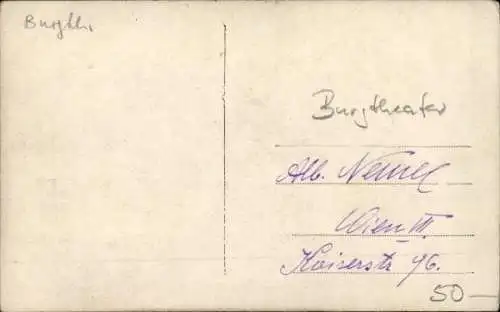 Burgth.
Burgtheater
Alb. Nemec
Wien III
Kaiserstr 96.
50—